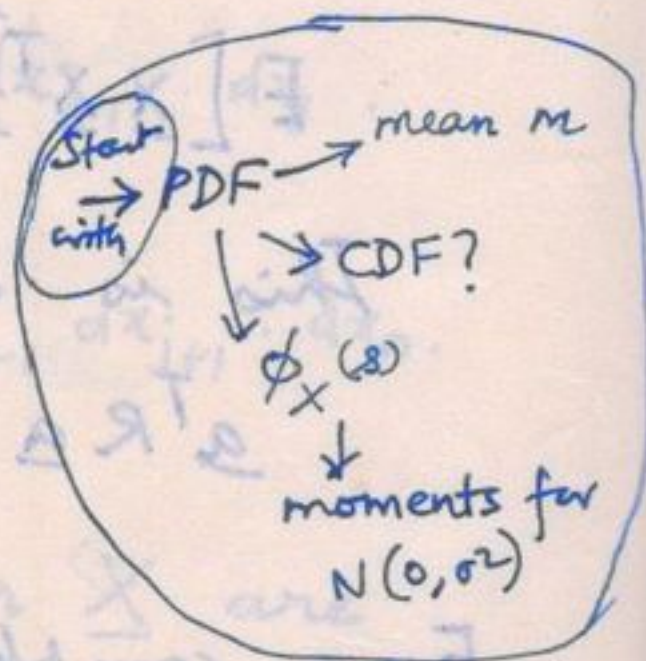 Start
with → PDF → mean m
↓ ↘ CDF?
ϕ_X (s)
↓
moments for
N(0, σ²)